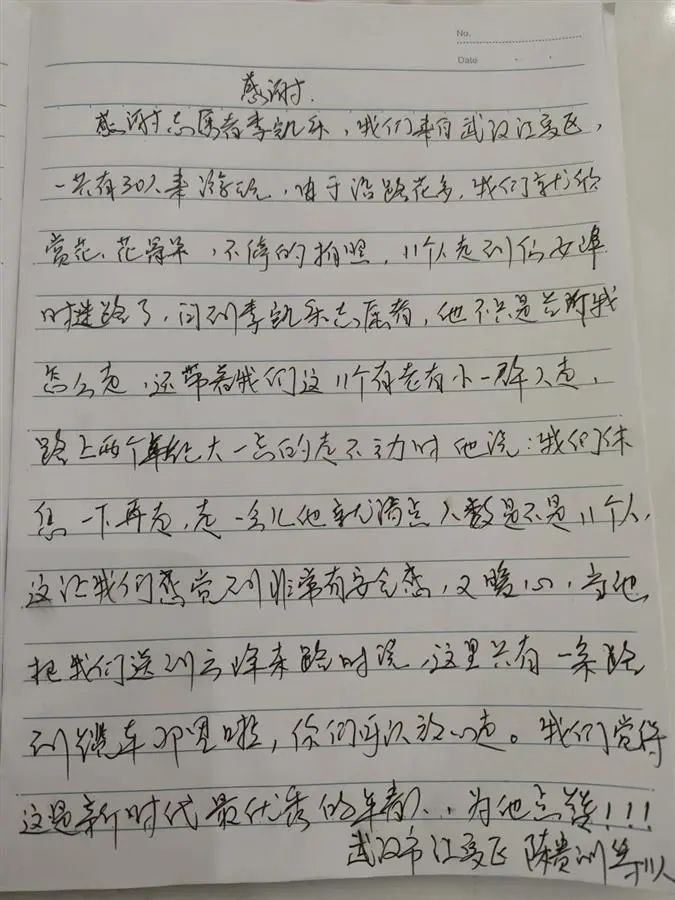 No.
Date
感谢
感谢志愿者李凯乐，我们来自武汉江夏区，
一共有30人来游玩，由于沿路花多，我们就
赏花、花，不停的拍照，11个人走到仙女
时迷路了，问到李凯乐志愿者，他不只是告诉我
怎么走，还带着我们这11个有老有小一群人走，
路上两个年纪大一点的走不动时他说：我们休
息一下再走，走一会儿他就清点人数是不是11个人，
这让我们感觉到非常有安全感，又暖心，当他
把我们送到云峰来路时说，这里只有一条路
到缆车那里啦，你们可以放心走。我们觉得
这是新时代最优秀的年青人，为他点赞！！！
武汉市江夏区 陈贵训等11人